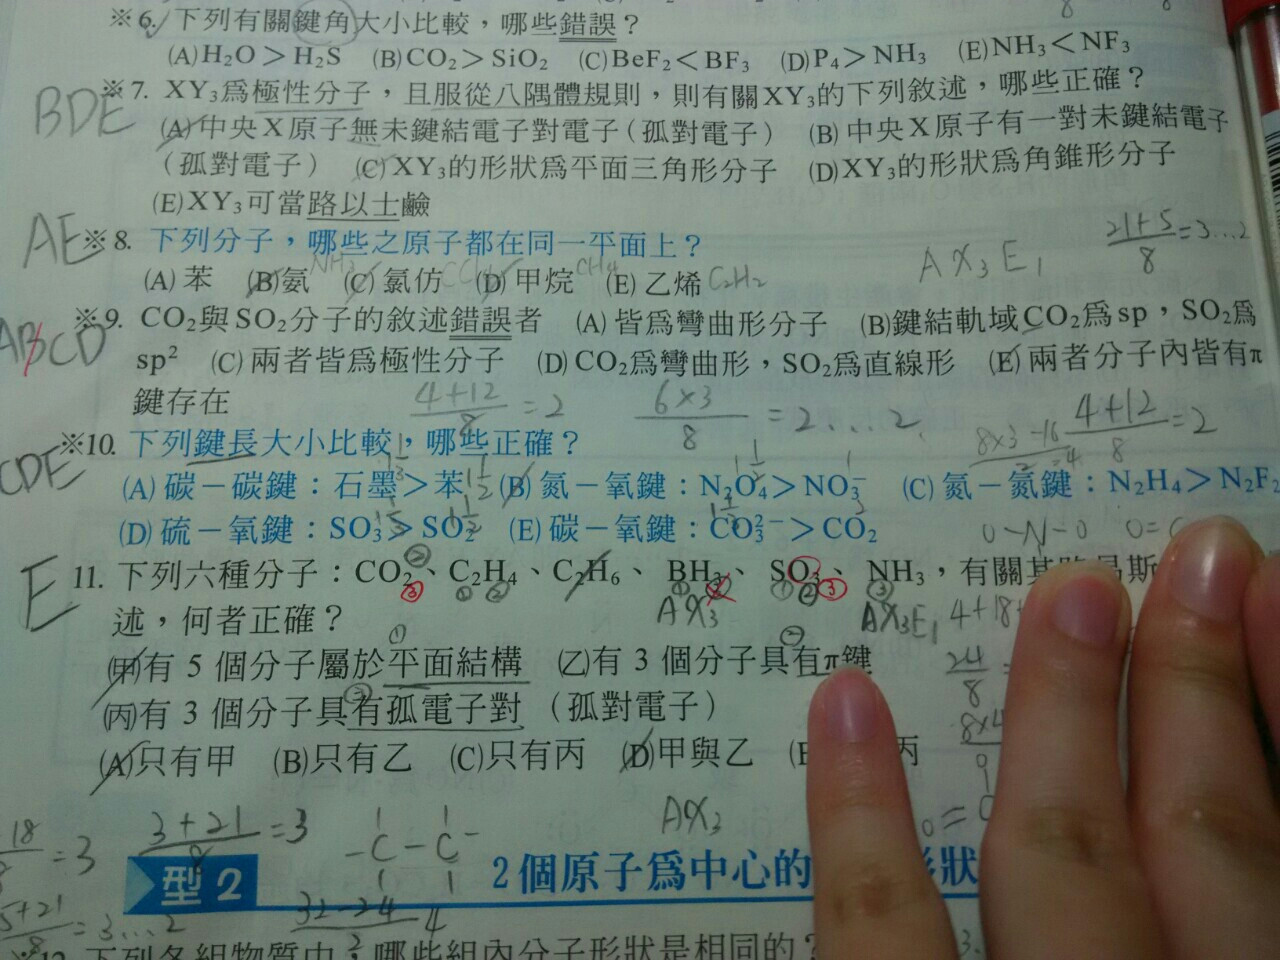 ※6. 下列有關鍵角大小比較，哪些錯誤？
(A)H₂O＞H₂S (B)CO₂＞SiO₂ (C)BeF₂＜BF₃ (D)P₄＞NH₃ (E)NH₃＜NF₃
BDE ※7. XY₃為極性分子，且服從八隅體規則，則有關XY₃的下列敘述，哪些正確？
(A)中央X原子無未鍵結電子對電子（孤對電子） (B)中央X原子有一對未鍵結電子
（孤對電子） (C)XY₃的形狀為平面三角形分子 (D)XY₃的形狀為角錐形分子
(E)XY₃可當路以士鹼
AE ※8. 下列分子，哪些之原子都在同一平面上？
21+5/8=3...2
AX₃E₁
(A)苯 (B)氨 NH₃ (C)氯仿 (D)甲烷 CH₄ (E)乙烯 C₂H₂
ABCD ※9. CO₂與SO₂分子的敘述錯誤者 (A)皆為彎曲形分子 (B)鍵結軌域CO₂為sp，SO₂為
sp² (C)兩者皆為極性分子 (D)CO₂為彎曲形，SO₂為直線形 (E)兩者分子內皆有π
鍵存在
4+12/8=2 6×3/8=2...2 4+12/8=2
CDE ※10. 下列鍵長大小比較，哪些正確？
(A)碳－碳鍵：石墨＞苯 (B)氮－氧鍵：N₂O₄＞NO₃⁻ (C)氮－氮鍵：N₂H₄＞N₂F₂
(D)硫－氧鍵：SO₃＞SO₂ (E)碳－氧鍵：CO₃²⁻＞CO₂
O-N-O
E 11. 下列六種分子：CO₂、C₂H₄、C₂H₆、BH₃、SO₃、NH₃，有關其
AX₃ AX₃E₁ 4+18
述，何者正確？
(甲)有 5 個分子屬於平面結構 (乙)有 3 個分子具有π鍵
24/8
(丙)有 3 個分子具有孤電子對 （孤對電子）
(A)只有甲 (B)只有乙 (C)只有丙 (D)甲與乙 丙
AX₃
18 =3 3+21/8=3 -C-C-
型2 2個原子為中心的 形狀
5+21/8=3...2 32-24/2 4
下列各組物質中，哪些組內分子形狀是相同的？